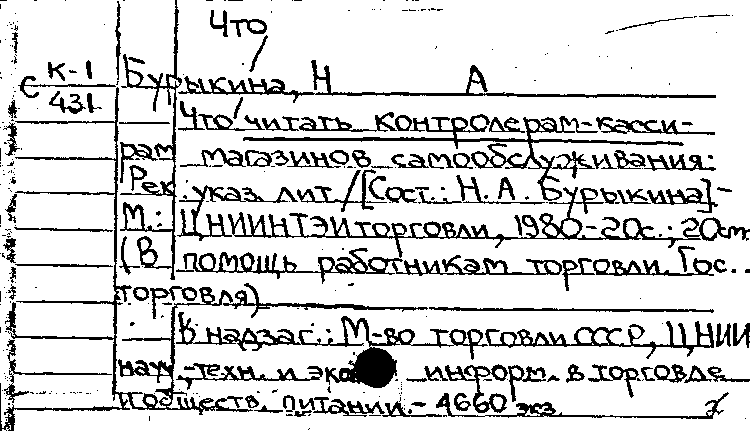 Что
К-1
С 431
Бурыкина, Н А
Что читать контролерам-касси-
рам магазинов самообслуживания:
Рек. указ. лит. / [Сост.: Н. А. Бурыкина].-
М.: ЦНИИНТЭИторговли, 1980.-20с.; 20см.
(В помощь работникам торговли. Гос.
торговля)
К надзаг.: М-во торговли СССР, ЦНИИ
науч.-техн. и экон. информ. в торговле
и обществ. питании.- 4660 экз